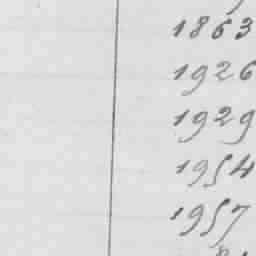 1863
1926
1929
1954
1957